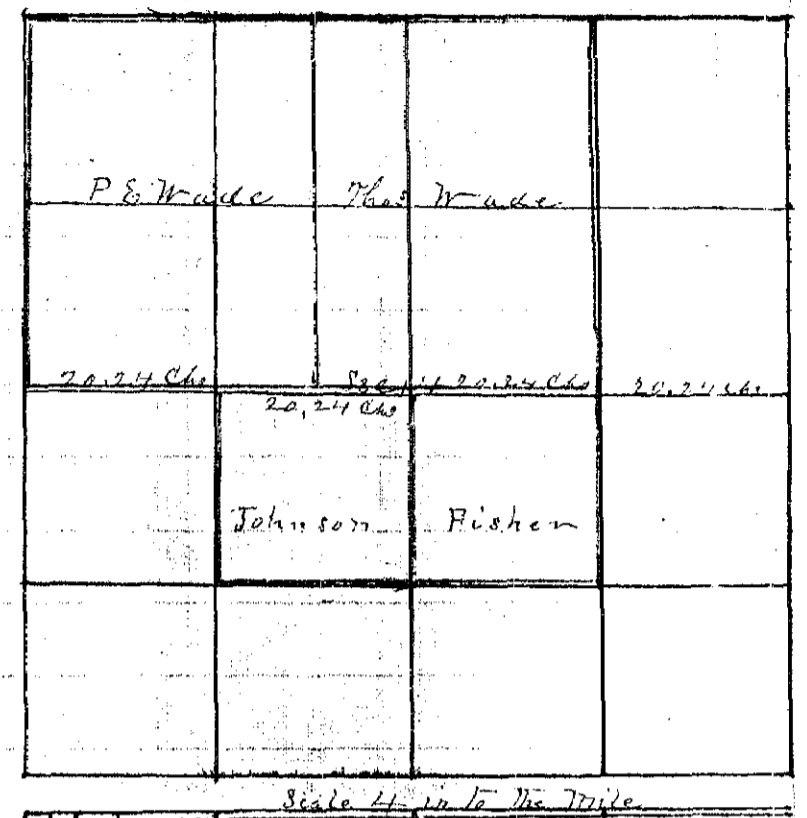 P E Wade Thos Wade
20.24 Chs Sec 14 20.24 Chs 20.24 Chs
20,24 Chs
Johnson Fisher
Scale 4 in to the Mile